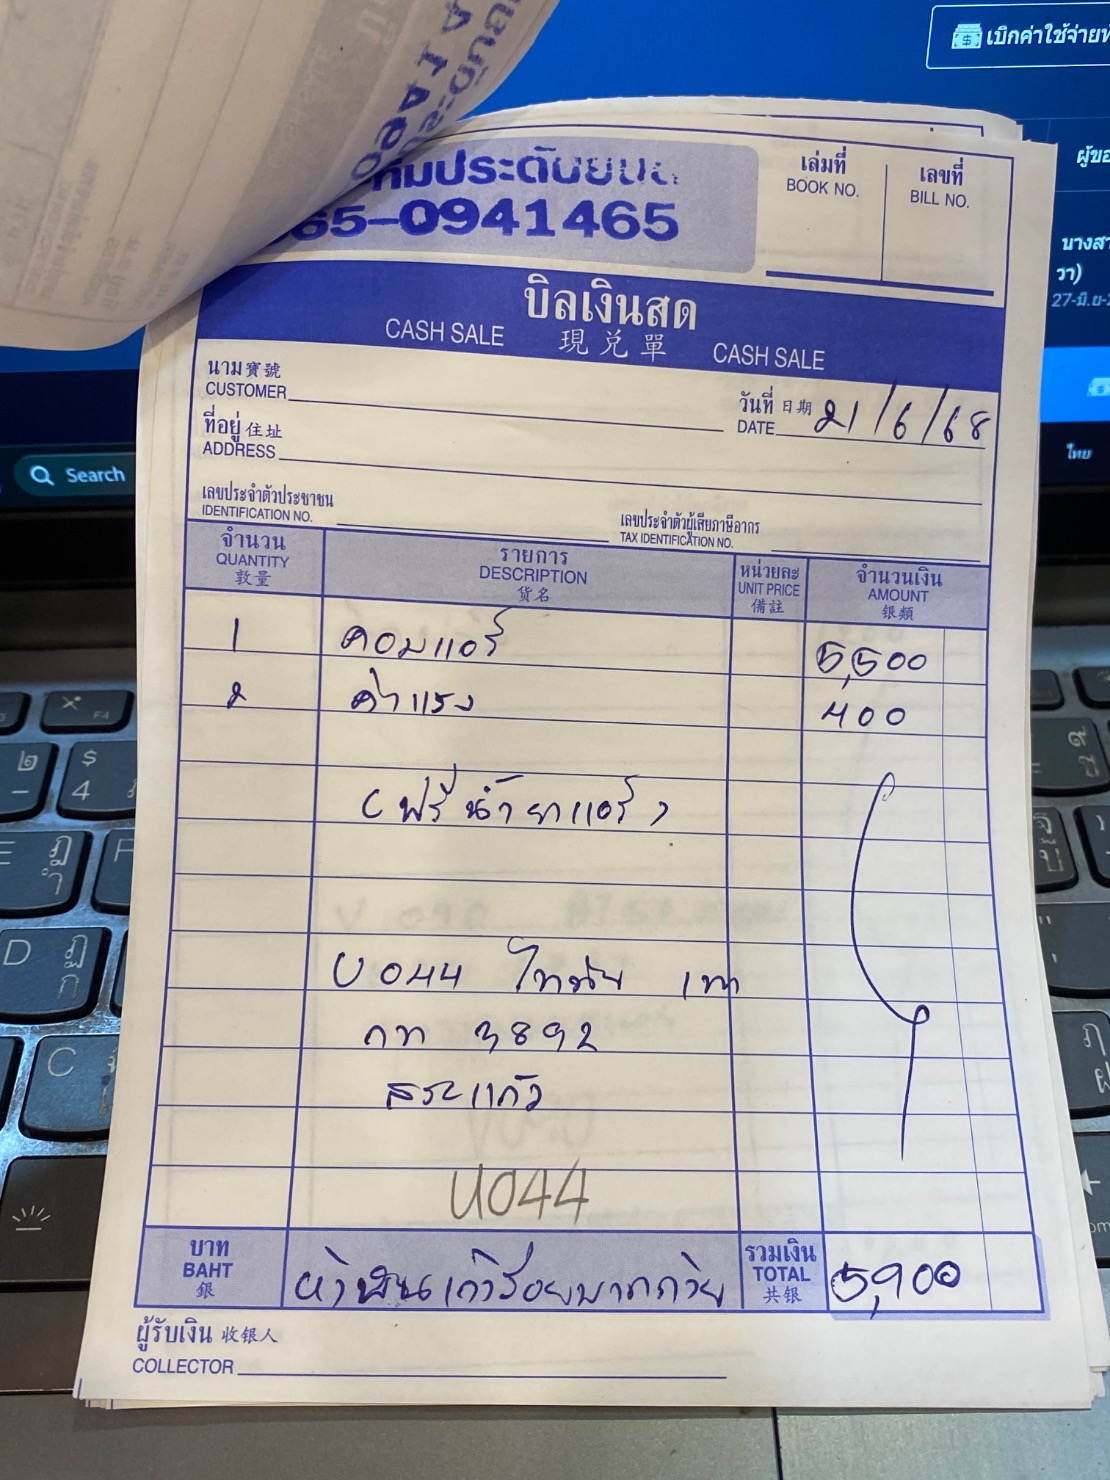 เบิกค่าใช้จ่าย
ประดับยนต์
65-0941465
เล่มที่
BOOK NO.
เลขที่
BILL NO.
บิลเงินสด
CASH SALE 現兑單 CASH SALE
นาม 寶號
CUSTOMER
วันที่ 日期 21/6/68
DATE
ที่อยู่ 住址
ADDRESS
เลขประจำตัวประชาชน
IDENTIFICATION NO.
เลขประจำตัวผู้เสียภาษีอากร
TAX IDENTIFICATION NO.
จำนวน รายการ หน่วยละ จำนวนเงิน
QUANTITY DESCRIPTION UNIT PRICE AMOUNT
數量 货名 備註 銀類
1 คอมแอร์ 5,500
2 ค่าแรง 400
(ฟรีน้ำยาแอร์)
U044 ไทรทัน เทา
กท 3892
สระแก้ว
U044
บาท
BAHT
銀
ห้าพันเก้าร้อยบาทถ้วน
รวมเงิน
TOTAL
共银
5,900
ผู้รับเงิน 收银人
COLLECTOR
Search
ไทย
นางสา
วา)
27-มิ.ย-
F4
$
4
D
C